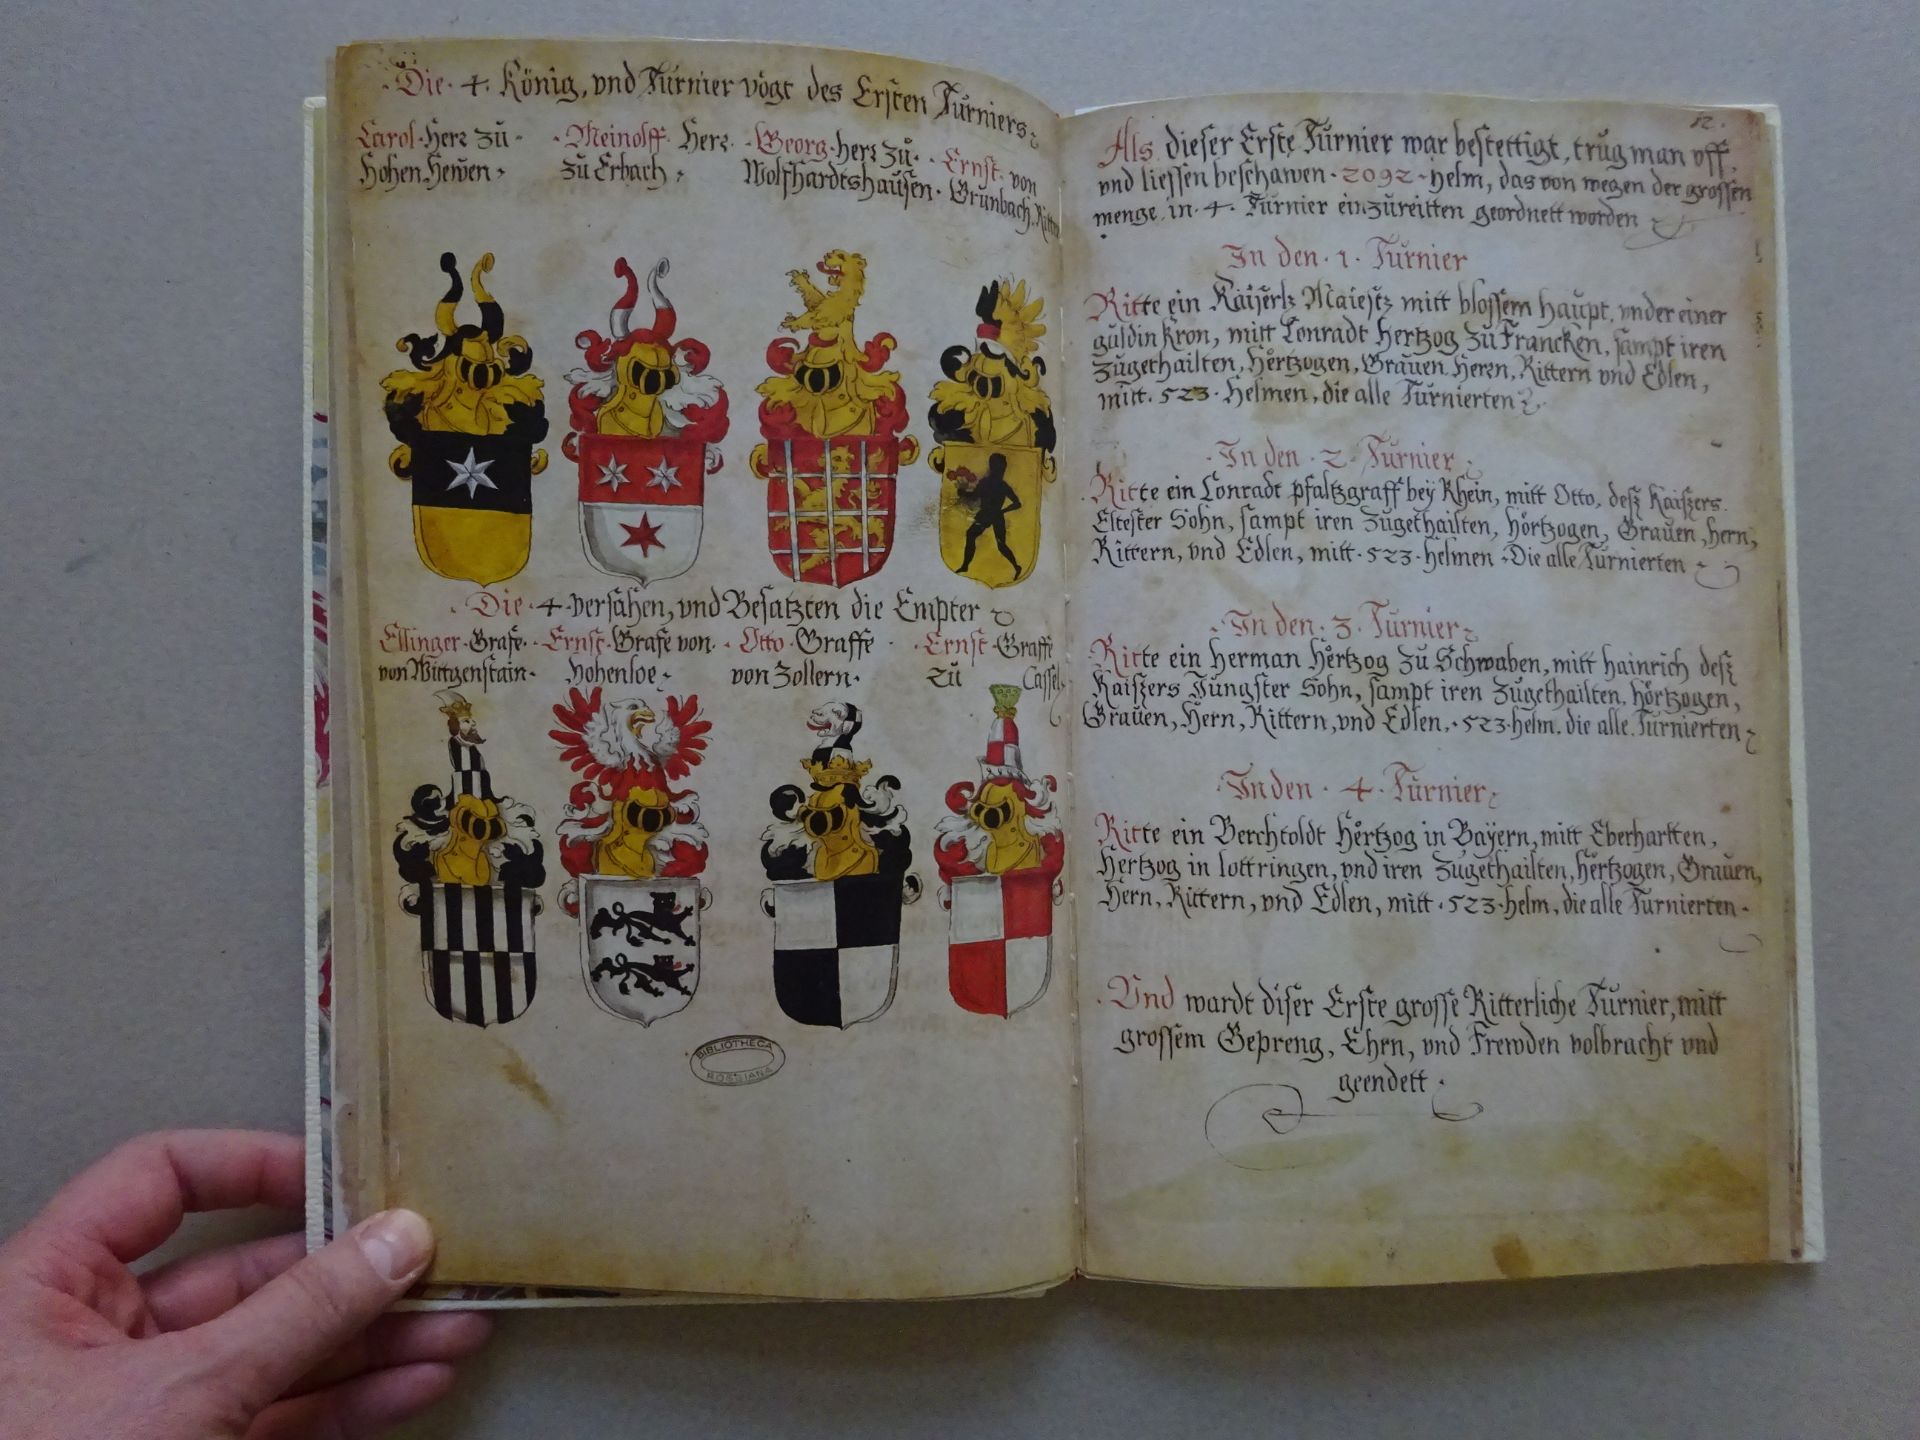 Die · 4 · König, vnd Turnier vögt des Ersten Turniers
Carol · Herr zu
Hohen Hewen
Meinolff Herr
zu Erbach
Georg · herr zu
Wolfhardtshausen ·
Ernst · von
Grünbach, Ritter
Die · 4 · versahen, vnd Besatzten die Empter
Ellinger · Grafe ·
von Wittgenstain ·
Ernst · Grafe von
hohenloe
Otto · Graffe
von Zollern ·
Ernst · Graffe
zu Cassel
BIBLIOTHECA
ROSSIANA
12 ·
Als dieser Erste Turnier war bestettigt, trug man vff,
vnd liessen beschawen · 2092 · Helm, das von wegen der grossen
menge in · 4 · Turnier einzureitten geordnett worden
In den · 1 · Turnier
Ritte ein Kaiserlz Maiestz mitt blossem haupt, vnder einer
guldin kron, mitt Conradt Hertzog zu Francken, sampt iren
zugethailten, Hörtzogen, Grauen Herrn, Rittern vnd Edlen,
mitt · 523 · Helmen, die alle Turnierten
In den · 2 · Turnier
Ritte ein Conradt pfaltzgraff bey Rhein, mitt Otto, desz Kaiszers
Eltester Sohn, sampt iren zugethailten, hörtzogen, Grauen, hern,
Rittern, vnd Edlen, mitt · 523 · helmen · Die alle Turnierten
In den · 3 · Turnier
Ritte ein Herman Hörtzog zu Schwaben, mitt hainrich desz
Kaiszers Jungster Sohn, sampt iren zugethailten, hörtzogen,
Grauen, Hern, Rittern, vnd Edlen, · 523 · helm, die alle Turnierten
In den · 4 · Turnier
Ritte ein Berchtoldt Hörtzog in Bayern, mitt Eberhartten,
Hertzog in lottringen, vnd iren zugethailten, hertzogen, Grauen,
Hern, Rittern, vnd Edlen, mitt · 523 · helm, die alle Turnierten ·
Vnd wardt diser Erste grosse Ritterliche Turnier, mitt
grossem Gepreng, Ehrn, vnd Frewden volbracht vnd
geendett ·